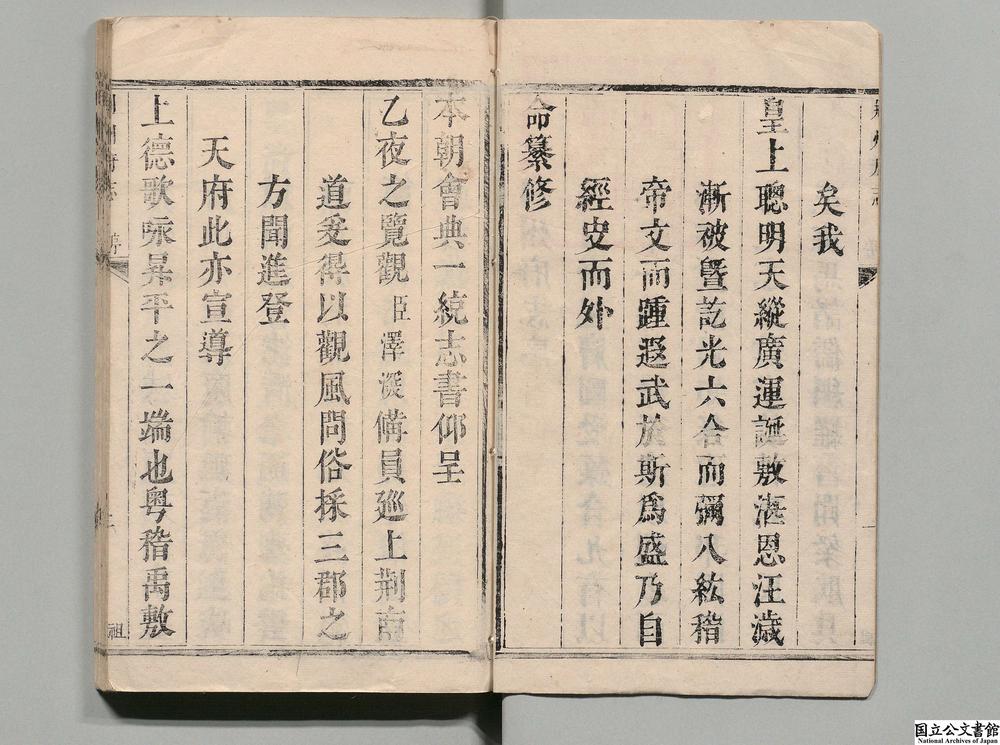 矣我
皇上聰明天縱廣運誕敷湛恩汪濊
漸被曁訖光六合而彌八紘稽
帝文而踵遐武於斯爲盛乃自
經史而外
命纂修
本朝會典一統志書仰呈
乙夜之覽觀臣澤深備員廵上荆南
道爰得以觀風問俗採三郡之
方聞進登
天府此亦宣導
上德歌咏昇平之一端也粤稽禹敷
祖
国立公文書館
National Archives of Japan